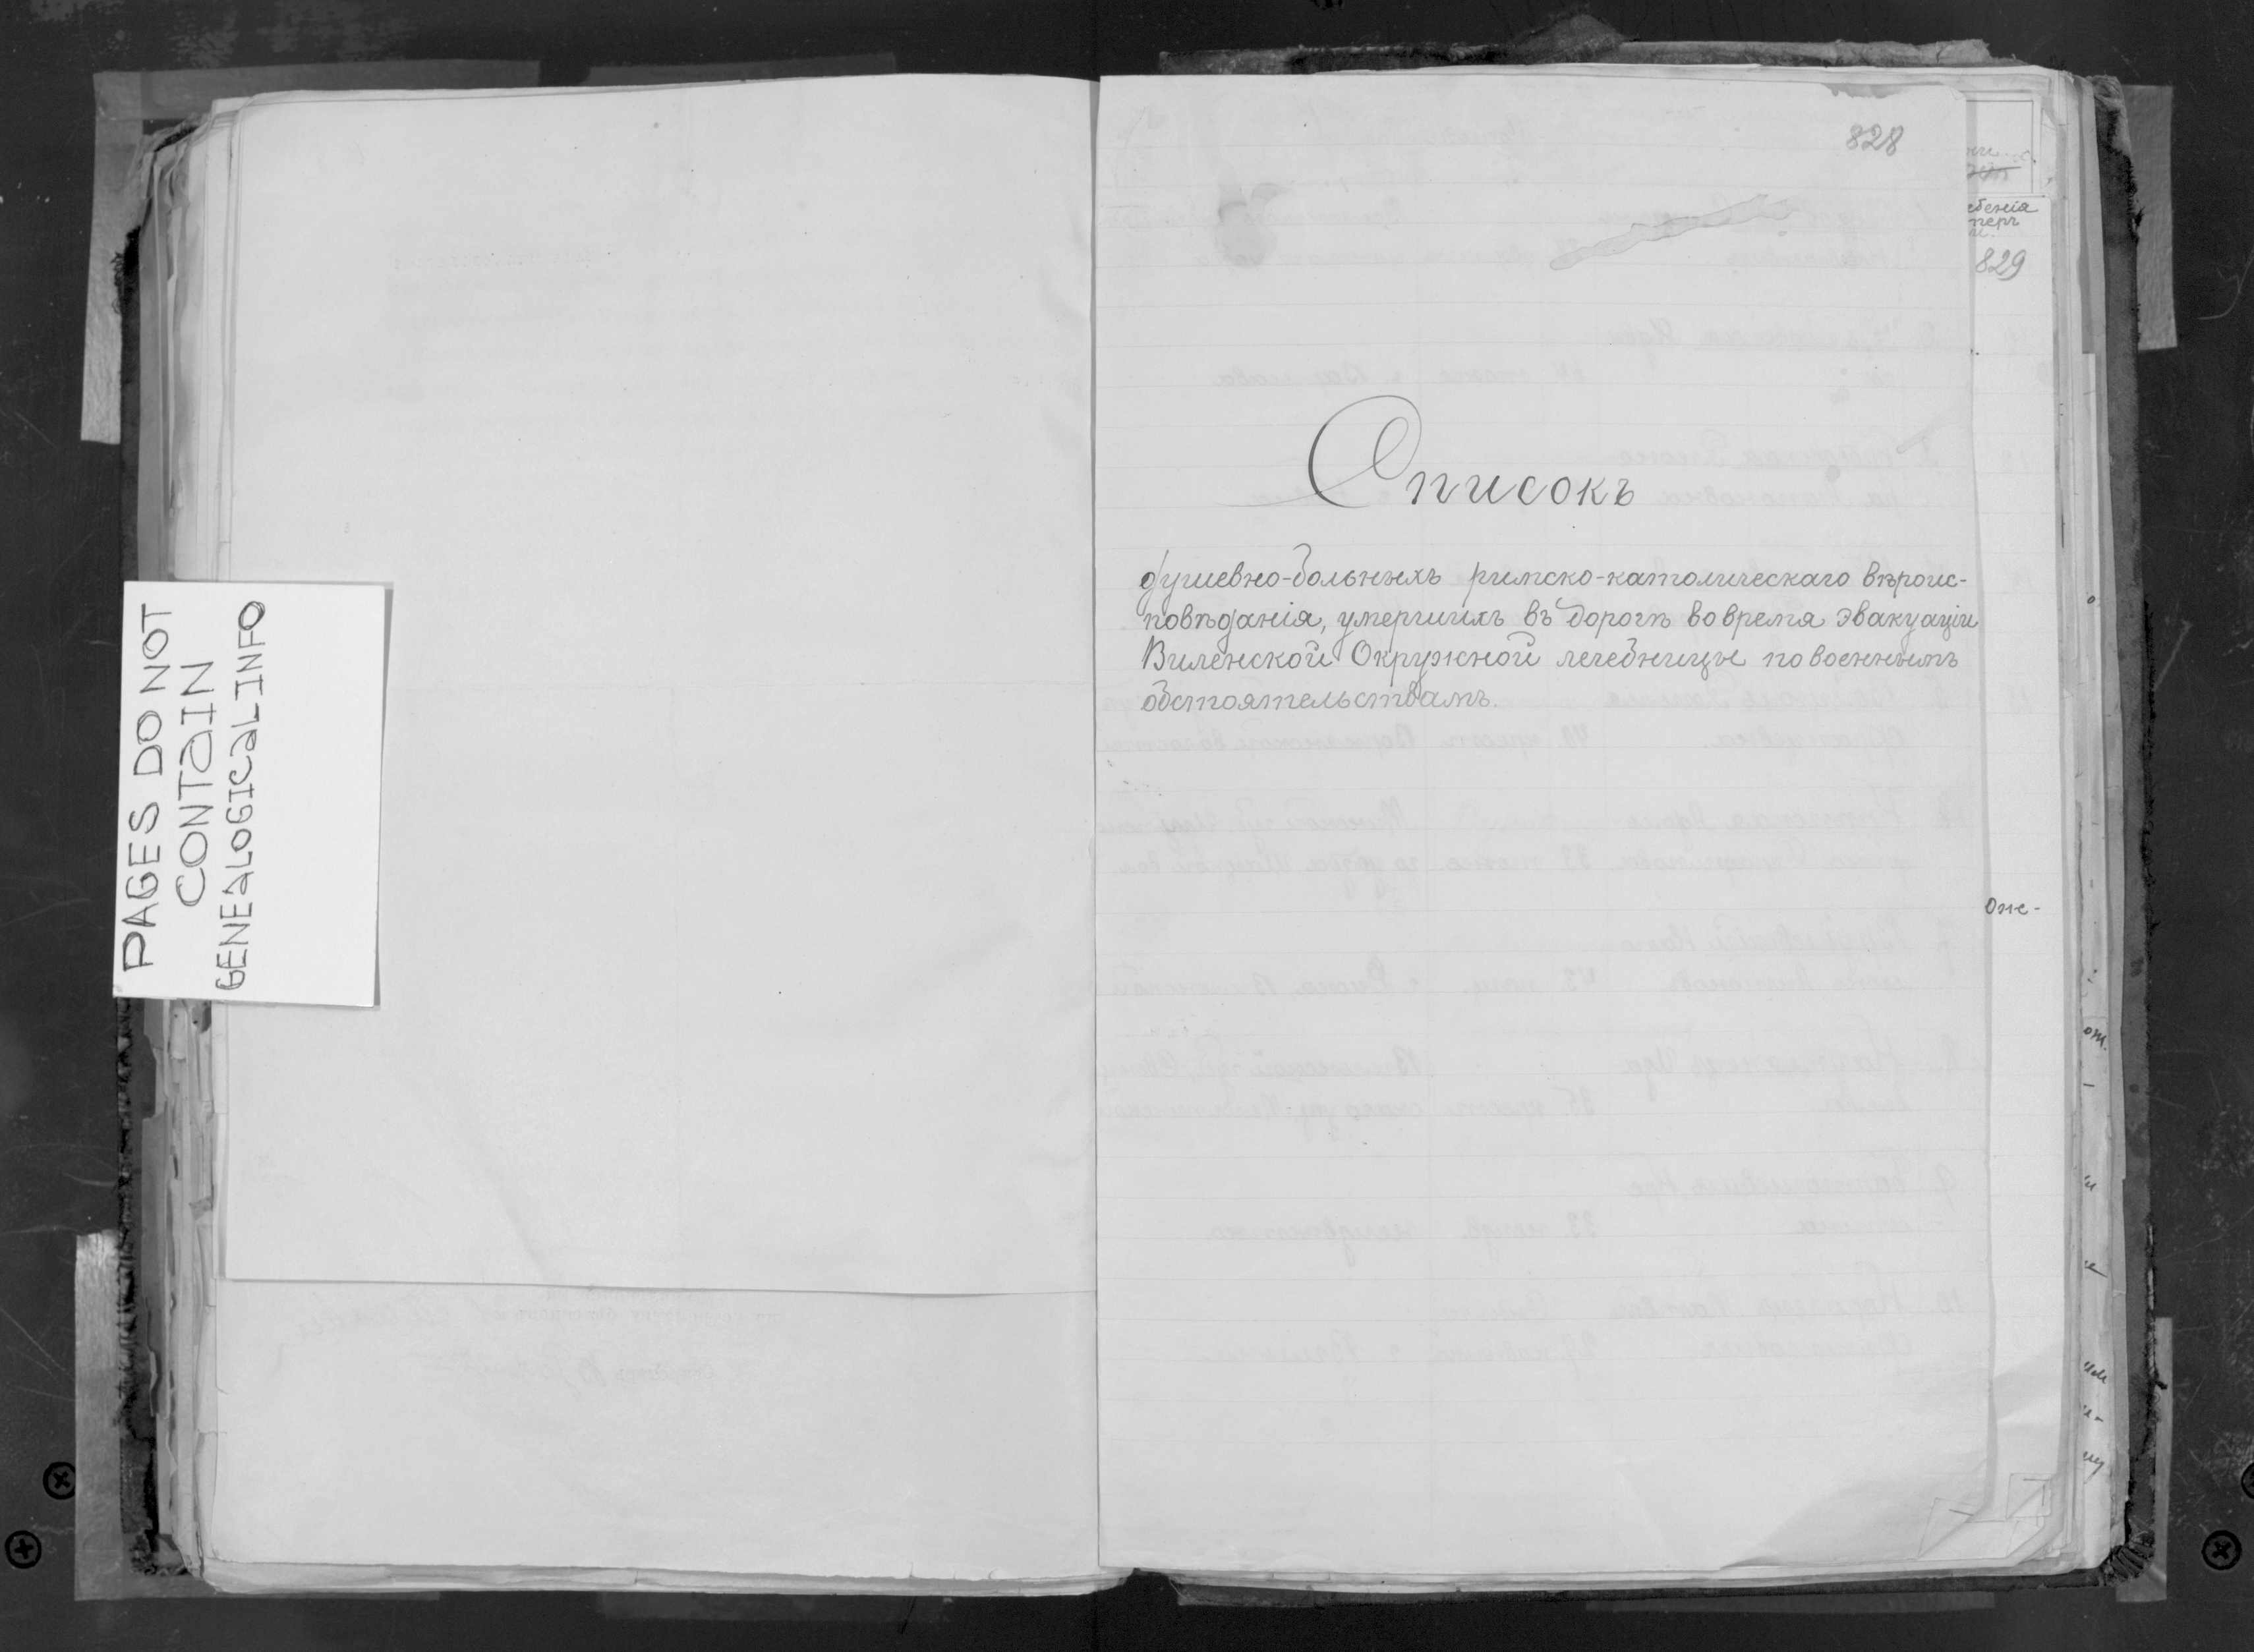 PAGES DO NOT
CONTAIN
GENEALOGICAL INFO
828
ебенія
829
Списокъ
душевно-больныхъ римско-католическаго вѣроис-
повѣданія, умершихъ въ дорогѣ во время эвакуаціи
Виленской Окружной лечебницы по военнымъ
обстоятельствамъ.